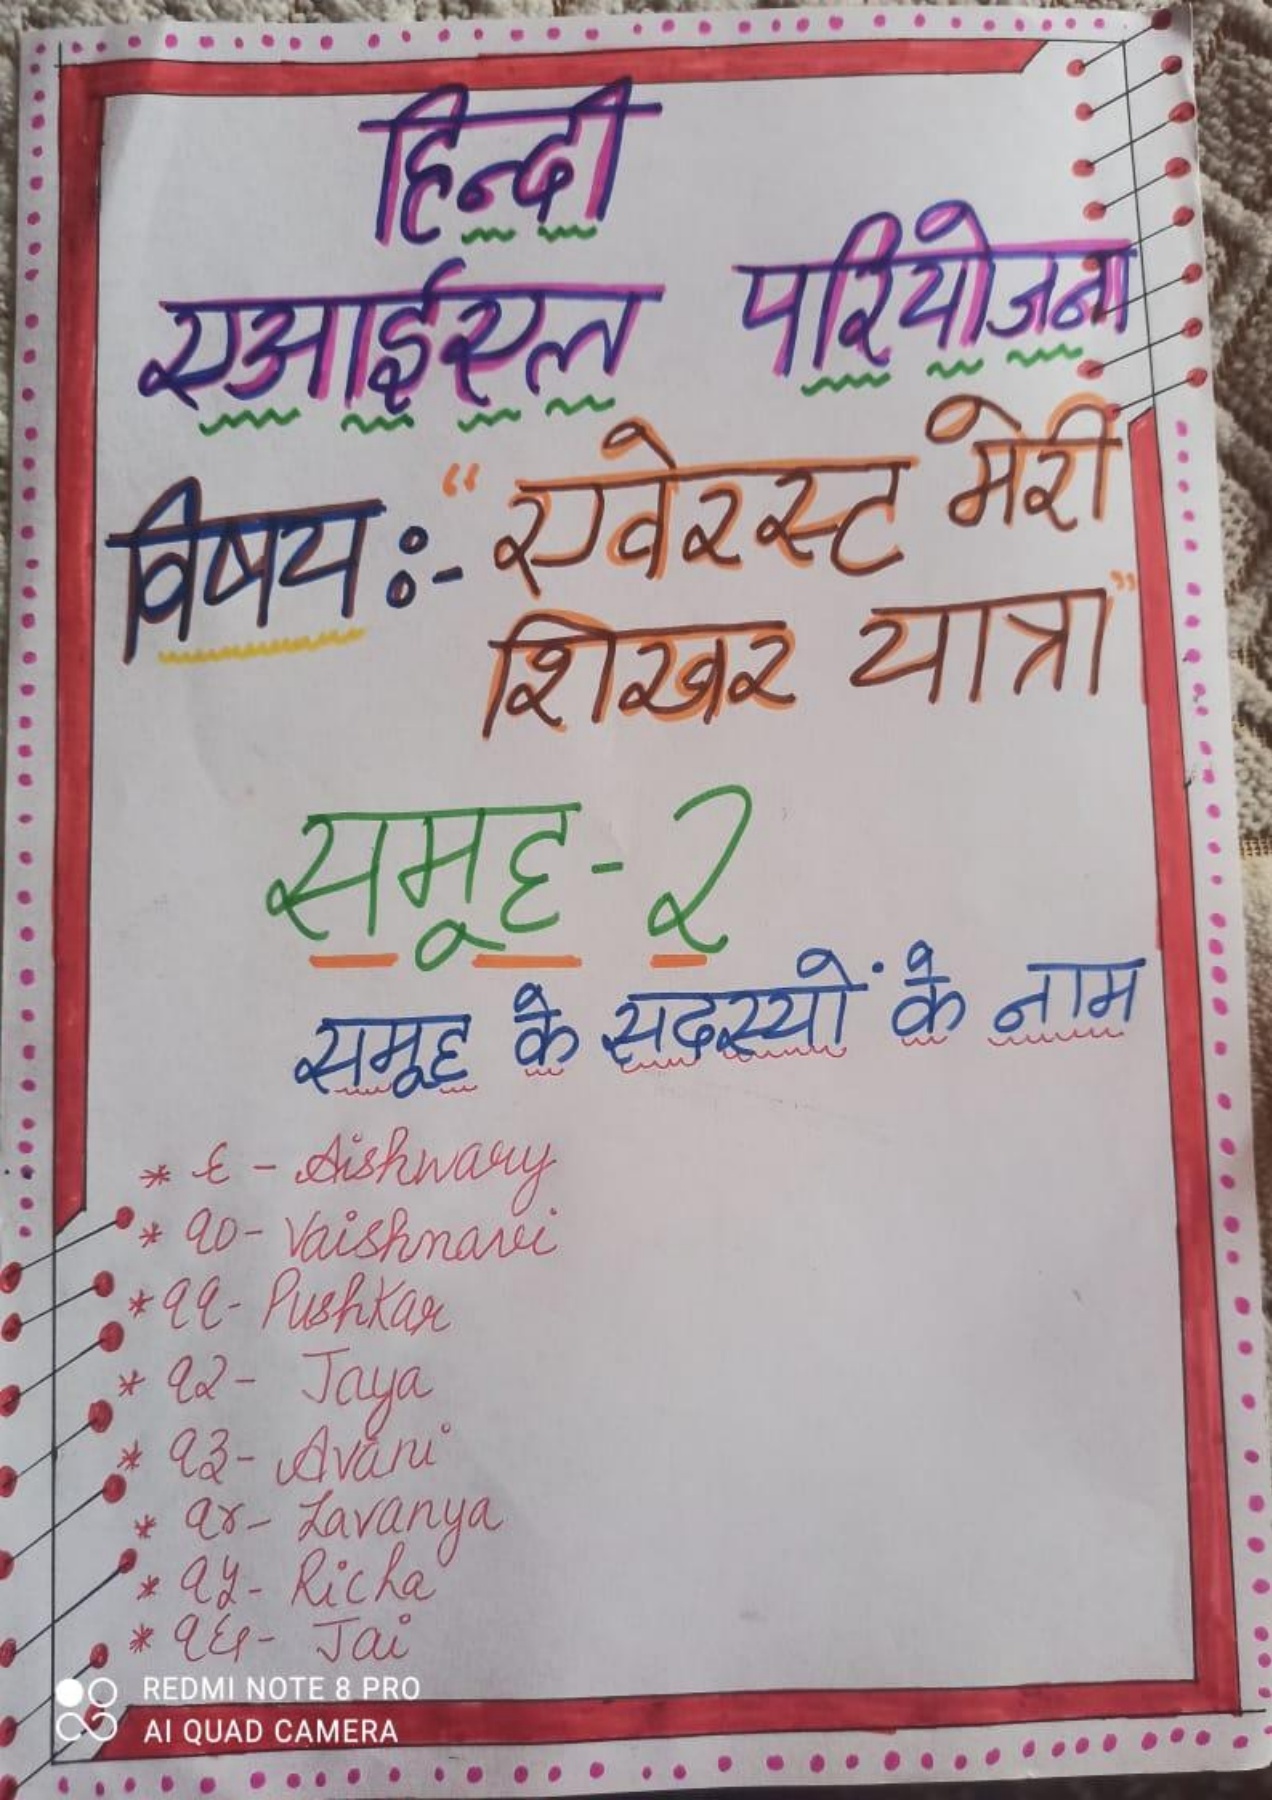 हिन्दी
एआईएल परियोजना
विषय :- “एवेरस्ट मेरी
शिखर यात्रा”
समूह - २
समूह के सदस्यों के नाम
* ६ - Aishwary
* १० - Vaishnavi
* ११ - Pushkar
* १२ - Jaya
* १३ - Avani
* १४ - Lavanya
* १५ - Richa
* १६ - Jai
REDMI NOTE 8 PRO
AI QUAD CAMERA